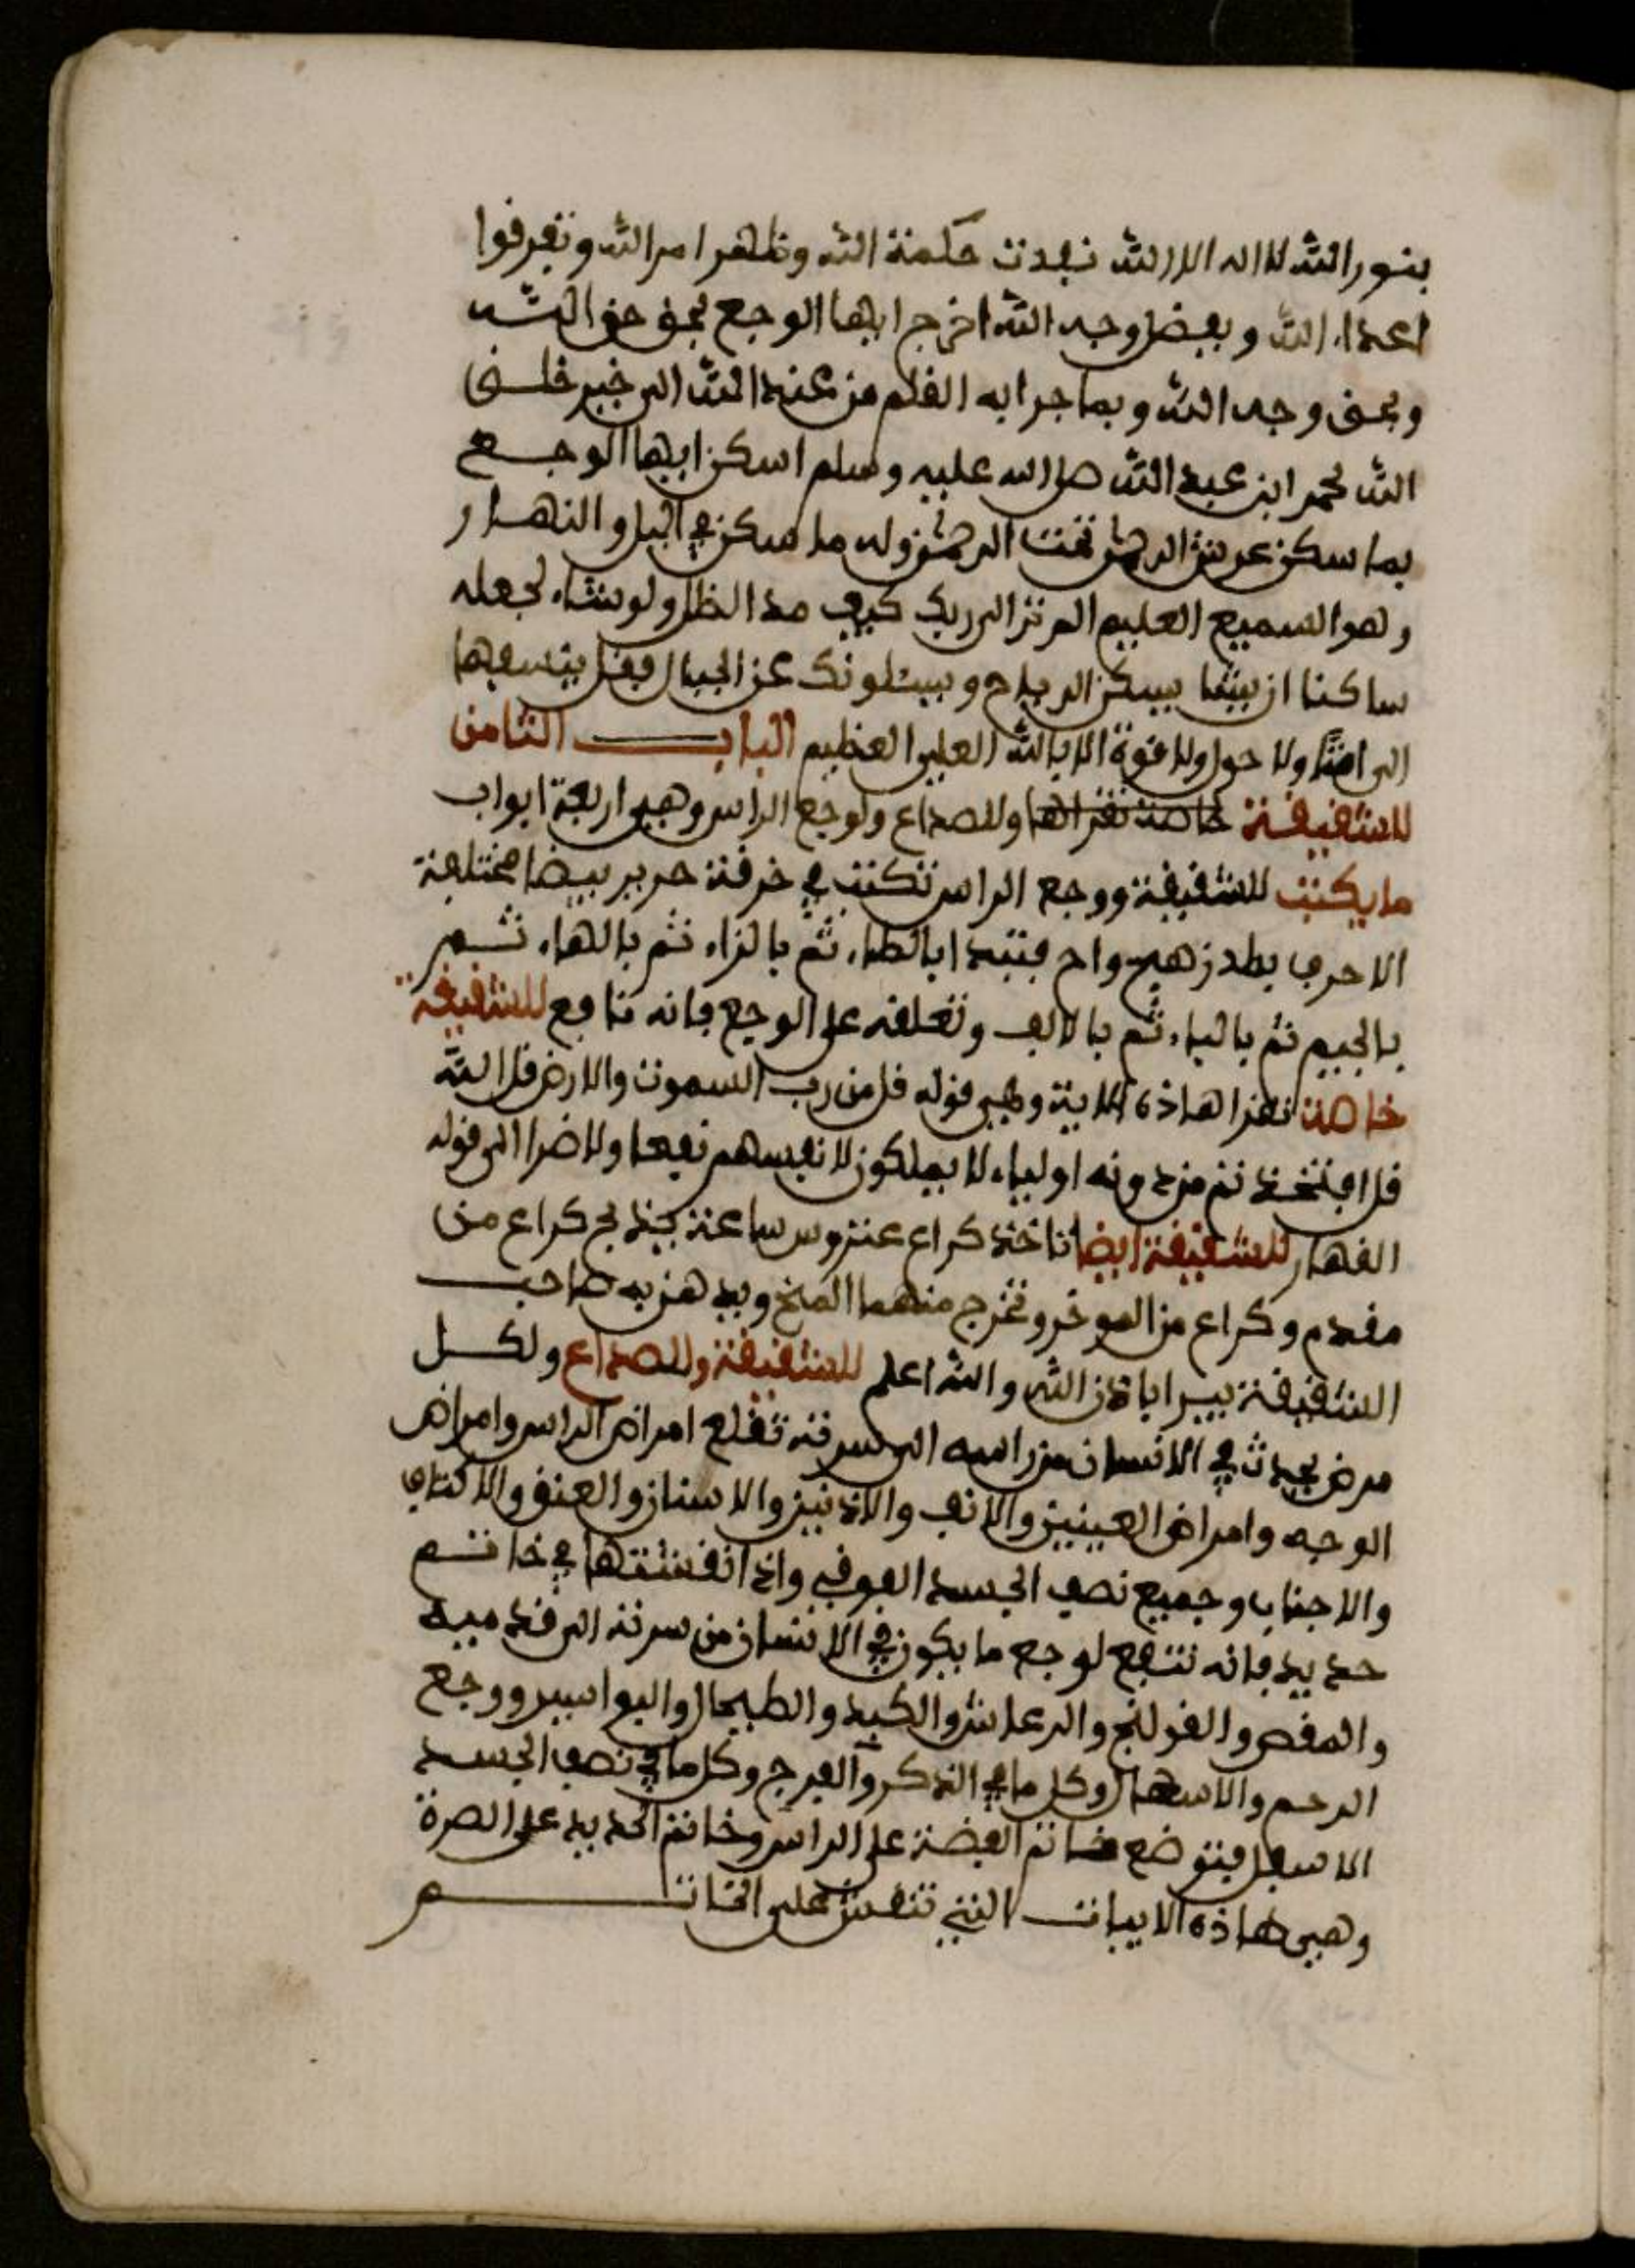 بنور الله لا اله الا الله نفدت حكمة الله وظهر امر الله وتفرقوا
اعداء الله وبفضل وجه الله اخرج ايها الوجع بحق حق الله
وبحق وجه الله وبما جرا به القلم من عند الله الى خير خلق
الله محمد ابن عبد الله صلى الله عليه وسلم اسكن ايها الوجع
بما سكن عرش الرحمن تحت الرحمن وله ما سكن في اليل والنهار
وهو السميع العليم الم تر الى ربك كيف مد الظل ولو شاء لجعله
ساكنا ان يشا يسكن الرياح ويسئلونك عن الجبال فقل ينسفها
الى امتا ولا حول ولا قوة الا بالله العلي العظيم الباب الثامن
للشقيقة خاصة تقراها وللصداع ولوجع الراس وهي اربعة ابواب
ما يكتب للشقيقة ووجع الراس تكتب في خرقة حرير بيضا مختلفة
الاحرف بطد زهج واح فتبدا بالطاء ثم بالزاء ثم بالهاء ثم
بالجيم ثم بالباء ثم بالالف وتعلقه على الوجع فانه نافع للشقيقة
خاصة تقرا هاذه الاية وهي قوله قل من رب السموت والارض قل الله
قل افتخذتم من دونه اولياء لا يملكون لانفسهم نفعا ولا ضرا الى قوله
القهار للشقيقة ايضا تاخذ كراع عنزوس ساعة يذبح كراع من
مقدم وكراع من الموخر وتخرج منهما المخ ويدهن به صاحب
الشقيقة يبرا باذن الله والله اعلم للشقيقة وللصداع ولكل
مرض يحدث في الانسان من راسه الى سرته تقلع امراض الراس وامراض
الوجه وامراض العينين والانف والاذنين والاسنان والعنق والاكتاف
والاجناب وجميع نصف الجسد الفوقي واذا نقشتها في خاتم
حديد فانه تنفع لوجع ما يكون في الانسان من سرته الى قدميه
والمغص والقولنج والرعاش والكبد والطيحال والبواسير ووجع
الرحم والاسهال وكل ما في الذكر والفرج وكل ما في نصف الجسد
الاسفل فتوضع خاتم الفضة على الراس وخاتم الحديد على الصرة
وهي هاذه الابيات التي تنقش على الخاتم